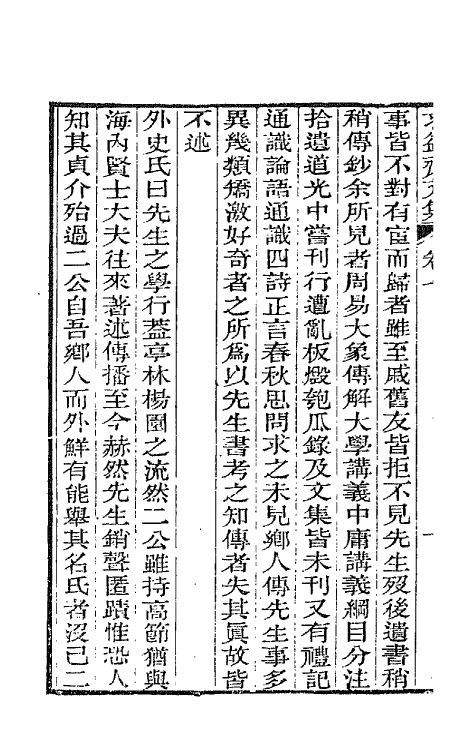 事皆不對有宦而歸者雖至戚舊友皆拒不見先生歿後遺書稍
稍傳鈔余所見者周易大象傳解大學講義中庸講義綱目分注
拾遺道光中嘗刊行遭亂板燬匏瓜錄及文集皆未刊又有禮記
通識論語通識四詩正言春秋思問求之未見鄉人傳先生事多
異幾類矯激好奇者之所爲以先生書考之知傳者失其眞故皆
不述
外史氏曰先生之學行蓋亭林楊園之流然二公雖持高節猶與
海內賢士大夫往來著述傳播至今赫然先生銷聲匿蹟惟恐人
知其貞介殆過二公自吾鄉人而外鮮有能舉其名氏者沒已二